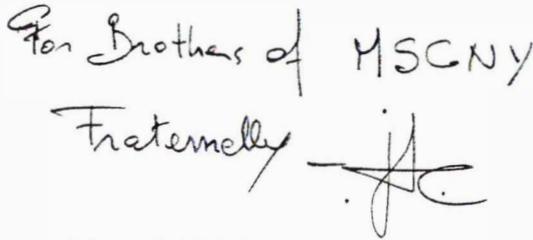 For Brothers of MSCNY
Fraternelly